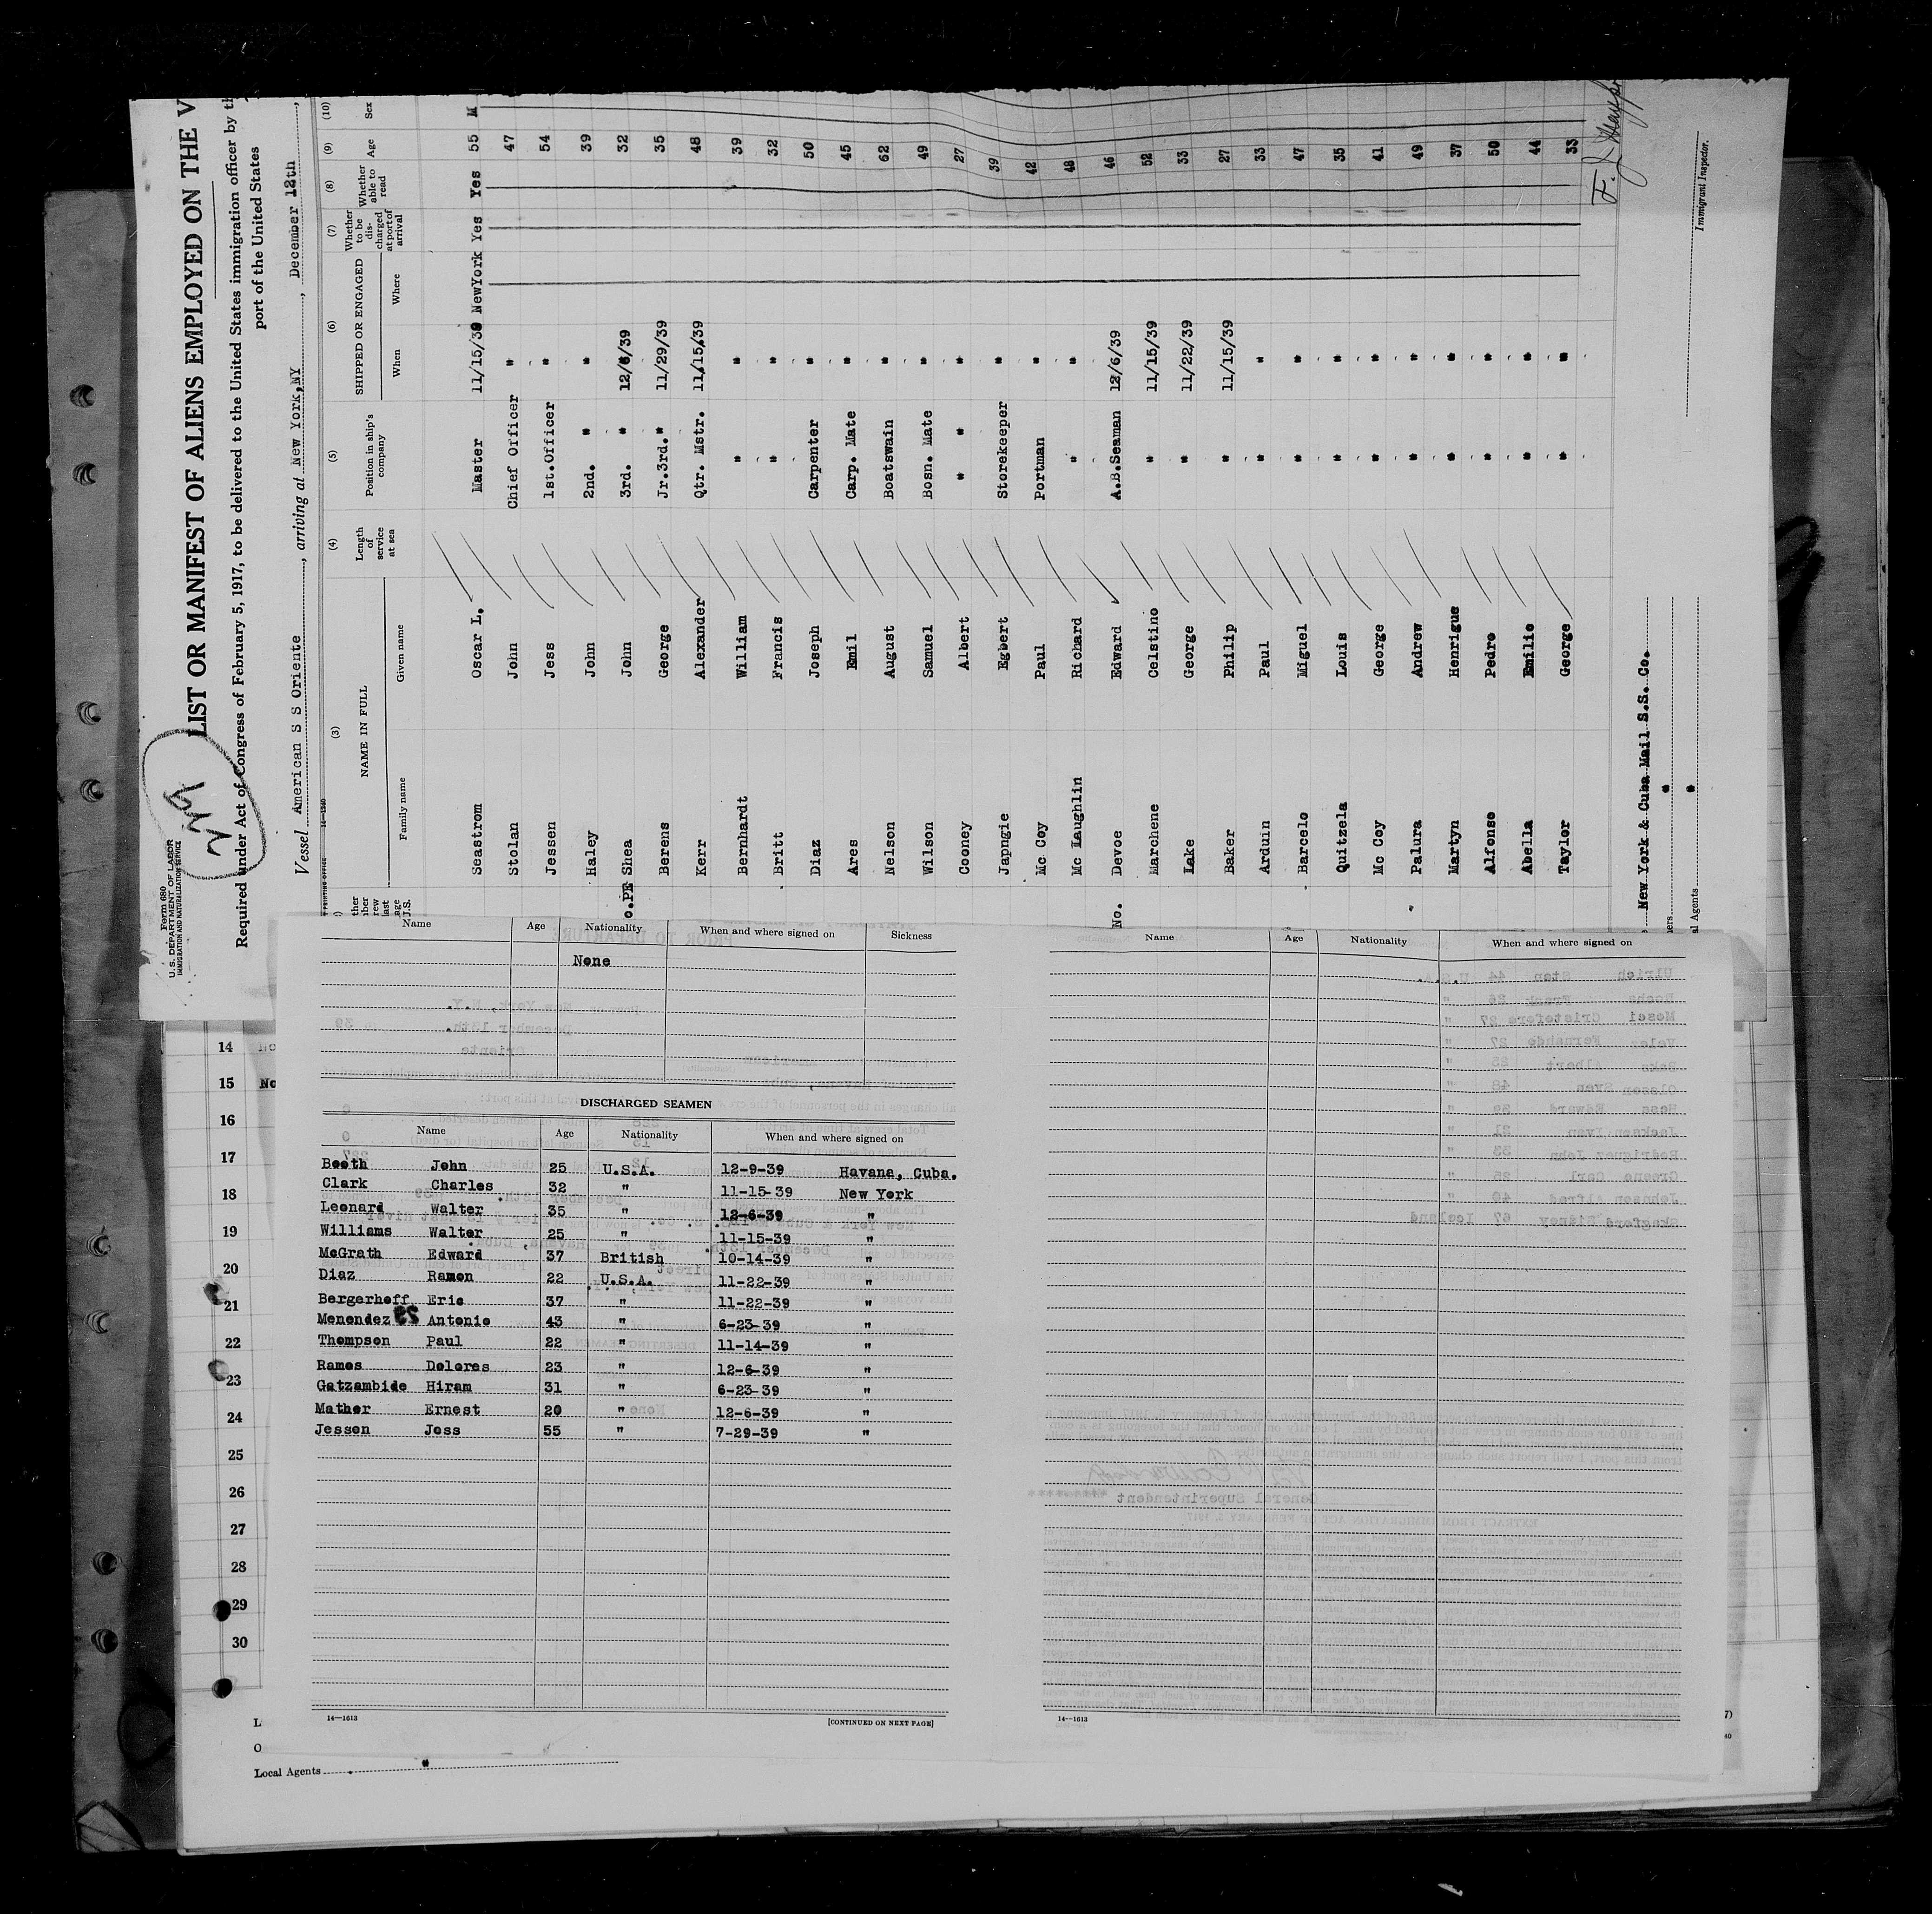 Form 680
U.S. DEPARTMENT OF LABOR
IMMIGRATION AND NATURALIZATION SERVICE
LIST OR MANIFEST OF ALIENS EMPLOYED ON THE V
Required under Act of Congress of February 5, 1917, to be delivered to the United States immigration officer by th
port of the United States
Vessel American S S Oriente, arriving at New York,NY, December 12th,
(3) (4) (5) (6) (7) (8) (9) (10)
NAME IN FULL Length of service at sea Position in ship's company SHIPPED OR ENGAGED Whether to be discharged at port of arrival Whether able to read Age Sex
Family name Given name When Where
Seastrom Oscar L. Master 11/15/39 NewYork Yes Yes 55 M
Stolan John Chief Officer " 47
Jessen Jess 1st.Officer " 54
Haley John 2nd. " " 39
o.PE Shea John 3rd. " 12/6/39 32
Berens George Jr.3rd." 11/29/39 35
Kerr Alexander Qtr. Mstr. 11/15/39 48
Bernhardt William " " 39
Britt Francis " " 32
Diaz Joseph Carpenter " 50
Ares Emil Carp. Mate " 45
Nelson August Boatswain " 62
Wilson Samuel Bosn. Mate " 49
Cooney Albert " " " 27
Japngie Egbert Storekeeper " 39
Mc Coy Paul Portman " 42
Mc Laughlin Richard " " 48
No. Devoe Edward A.B.Seaman 12/6/39 46
Marchene Celstino " 11/15/39 52
Lake George " 11/22/39 33
Baker Philip " 11/15/39 27
Arduin Paul " " 33
Barcelo Miguel " " 47
Quitzela Louis " " 35
Mc Coy George " " 41
Palura Andrew " " 49
Martyn Henrigue " " 37
Alfonso Pedro " " 50
Abella Emilio " " 44
Taylor George " " 33
New York & Cuba Mail S.S. Co.
"
al Agents "
Immigrant Inspector.
Name Age Nationality When and where signed on Sickness
None
DISCHARGED SEAMEN
Name Age Nationality When and where signed on
Booth John 25 U.S.A. 12-9-39 Havana, Cuba.
Clark Charles 32 " 11-15-39 New York
Leonard Walter 35 " 12-6-39 "
Williams Walter 25 " 11-15-39 "
McGrath Edward 37 British 10-14-39 "
Diaz Ramon 22 U.S.A. 11-22-39 "
Bergerhoff Eric 37 " 11-22-39 "
Menendez Antonio 43 " 6-23-39 "
Thompson Paul 22 " 11-14-39 "
Ramos Dolores 23 " 12-6-39 "
Gatzambide Hiram 31 " 6-23-39 "
Mather Ernest 20 " 12-6-39 "
Jessen Jess 55 " 7-29-39 "
14—1613 [CONTINUED ON NEXT PAGE]
Name Age Nationality When and where signed on
14—1613
14
15 No
16
17
18
19
20
21
22
23
24
25
26
27
28
29
30
Local Agents "